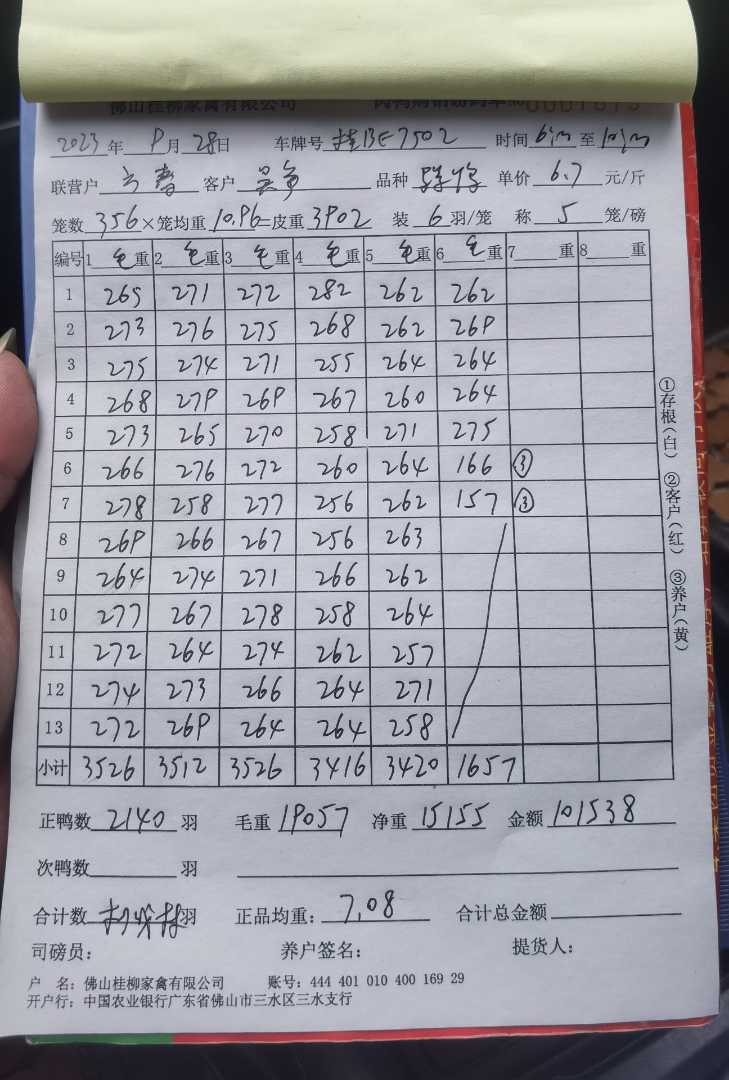 佛山桂柳家禽有限公司
2023年 9月 28日 车牌号 桂BE7502 时间 至
联营户 客户 吴 品种 单价 6.7 元/斤
笼数 356×笼均重 10.96=皮重 3902 装 6 羽/笼 称 5 笼/磅
编号 1 毛 重 2 毛 重 3 毛 重 4 毛 重 5 毛 重 6 毛 重 7 重 8 重
1 265 271 272 282 262 262
2 273 276 275 268 262 269
3 275 274 271 255 264 264
4 268 279 269 267 260 264
5 273 265 270 258 271 275
6 266 276 272 260 264 166 ③
7 278 258 277 256 262 157 ③
8 269 266 267 256 263
9 264 274 271 266 262
10 277 267 278 258 264
11 272 264 274 262 257
12 274 273 266 264 271
13 272 269 264 264 258
小计 3526 3512 3526 3416 3420 1657
正鸭数 2140 羽 毛重 19057 净重 15155 金额 101538
次鸭数 羽
合计数 羽 正品均重: 7.08 合计总金额
司磅员: 养户签名: 提货人:
户 名: 佛山桂柳家禽有限公司 账号: 444 401 010 400 169 29
开户行: 中国农业银行广东省佛山市三水区三水支行
①存根(白) ②客户(红) ③养户(黄)